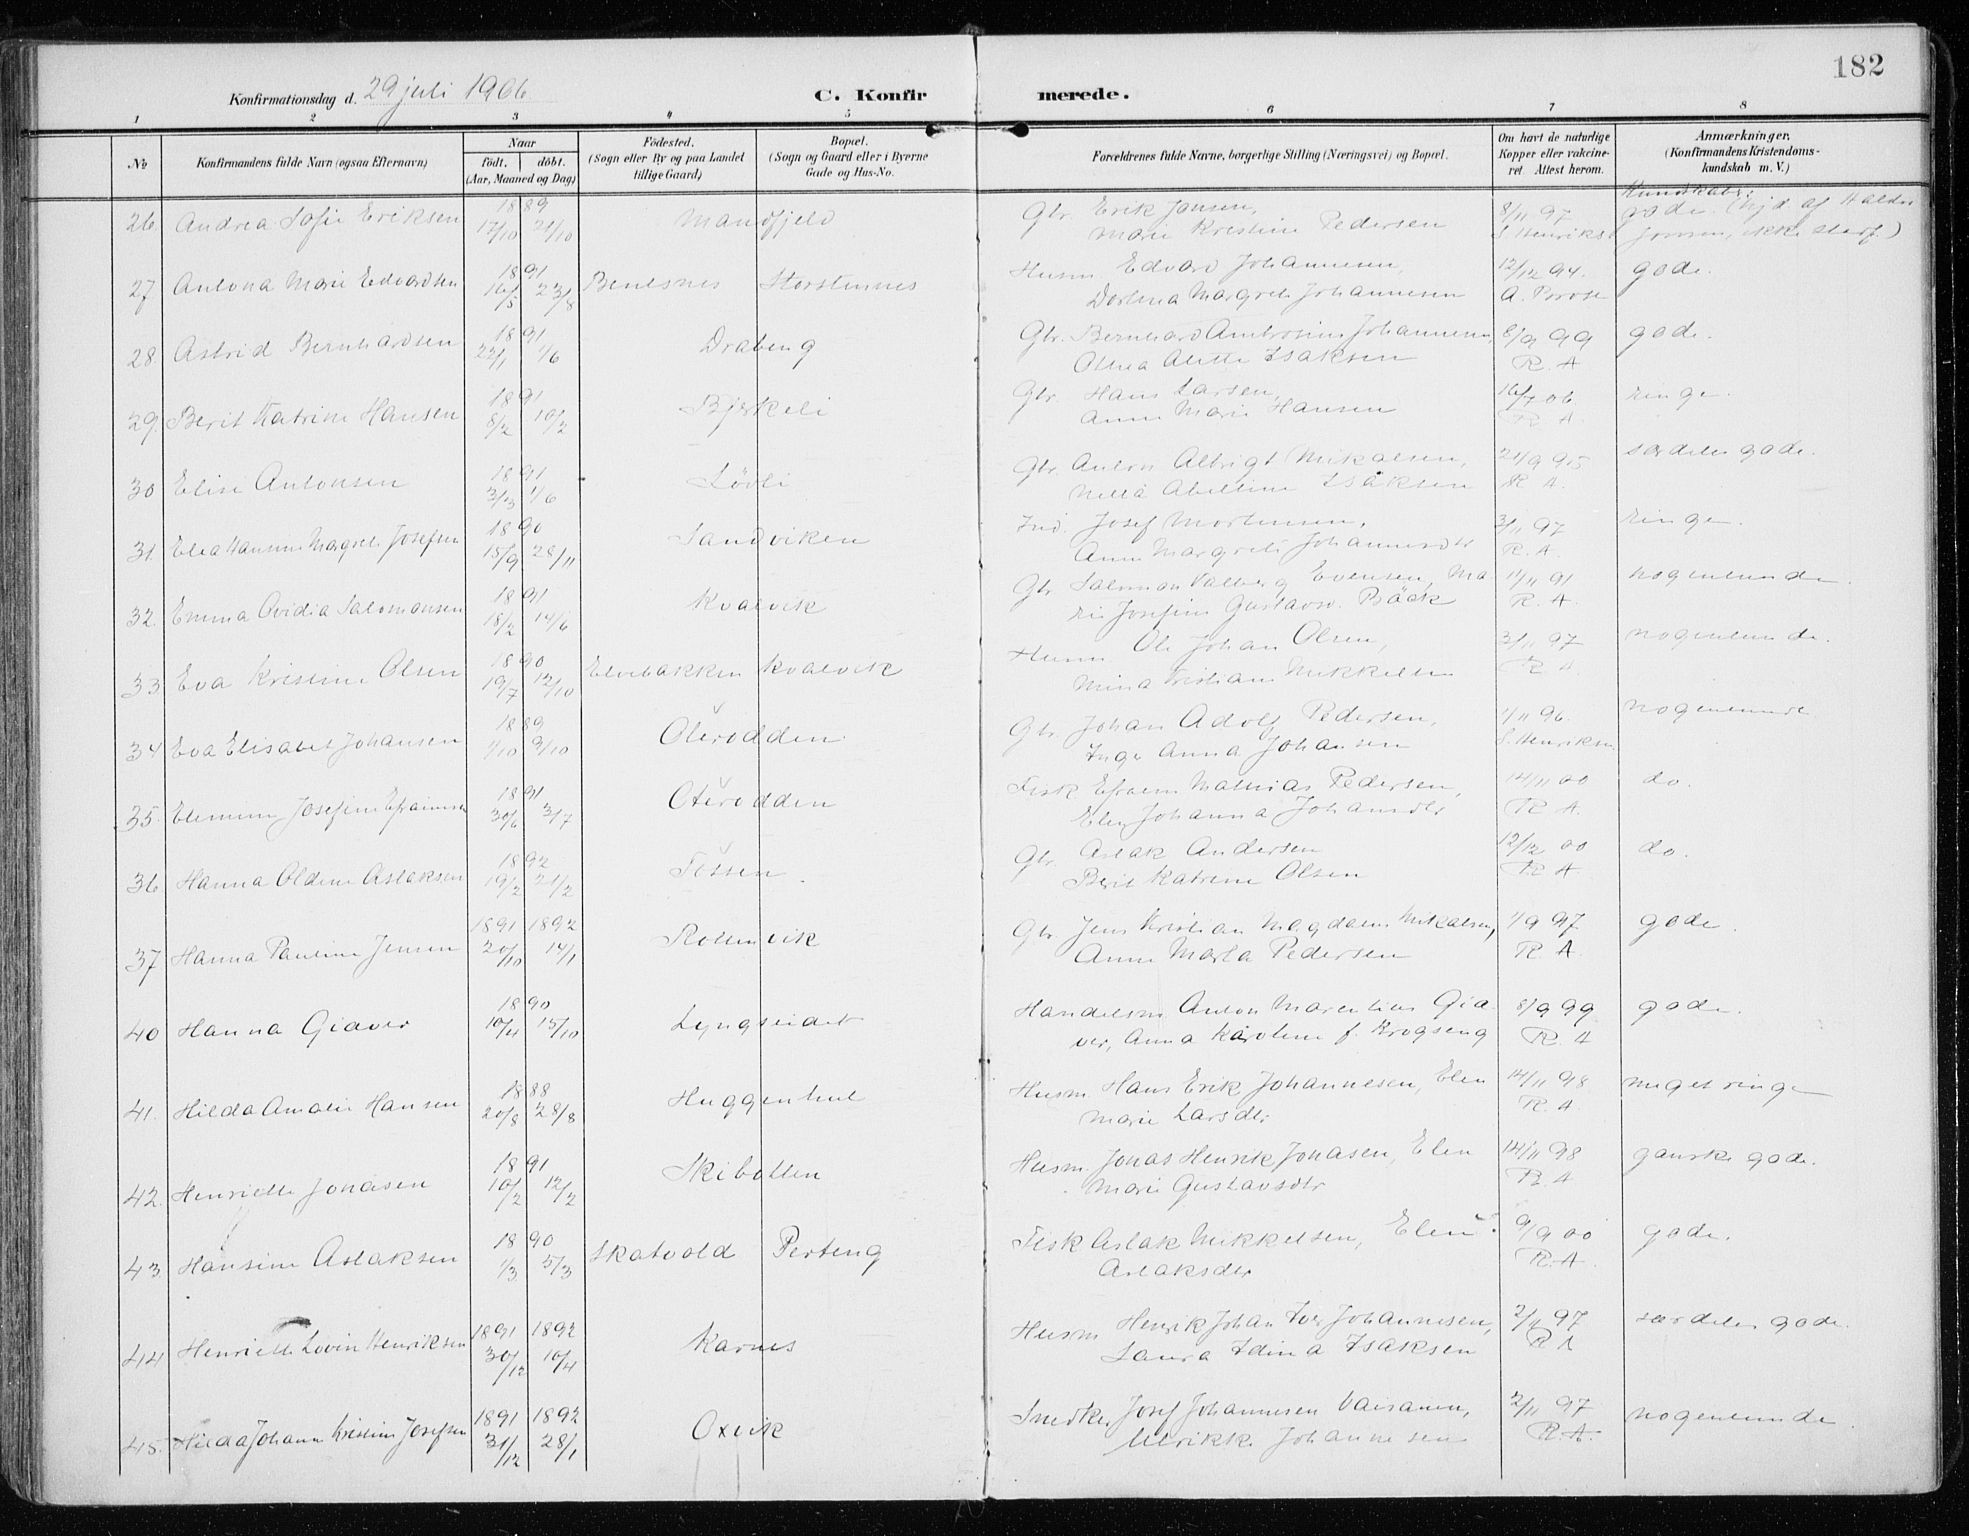 182
Konfirmationsdag d. 29 juli 1906 C. Konfir merede.
1 2 3 4 5 6 7 8
№ Konfirmandens fulde Navn (ogsaa Efternavn) Naar født. døbt. (Aar, Maaned og Dag) Födested. (Sogn eller By og paa Landet tillige Gaard) Bopæl. (Sogn og Gaard eller i Byerne Gade og Hus-No. Forældrenes fulde Navne, borgerlige Stilling (Næringsvei) og Bopæl. Om havt de naturlige Kopper eller vakcineret. Attest herom. Anmærkninger. (Konfirmandens Kristendomskundskab m. V.)
Kundskaber:
26. Andrea Sofie Eriksen 1889 17/10 21/10 Mandfjeld Gbr. Erik Jonsen, 8/11 97 gode.
Marie Kristine Pedersen S. Henriks
27 Antona Marie Edvardsen 1891 16/5 23/8 Benesnes Storstennes Husm. Edvard Johannesen, 12/12 94. gode.
Dortena Margrete Johannesen
28 Astrid Bernhardsen 1891 22/1 1/6 Drabeng Gbr. Bernhard Ambrosius Johannesen 6/9 99 gode.
Olena Alette Isaksen R. A
29. Berit Katrine Hansen 1891 8/2 10/2 Bjerkeli Gbr. Hans Larsen, 16/7 06 ringe.
Anne Marie Hansen R A.
30 Elise Antonsen 1891 3/3 1/6 Lövli Gbr. Anton Albrigt Mikalsen, 21/9 95 særdeles gode.
Nella Abelline Isaksen R A.
31. Elea Hansine Margrete Josefsen 1890 15/9 28/11 Sandviken Ind. Josef Mortensen, 3/11 97 ringe.
Anne Margrete Johannesdtr R. A.
32. Emma Ovidia Salomonsen 1891 18/2 14/6 Kvalvik Gbr Salomon Valberg Evensen, Ma- 11/11 91 nogenlunde.
rie Josefine Gustavsd. Bäck R. A.
33 Eva Kristine Olsen 1890 19/7 12/10 Elvebakken Kvalvik Husm Ole Johan Olsen, 3/11 97 nogenlunde.
Mina Kristiane Mikkelsen R A
34 Eva Elisabet Johansen 1889 1/10 9/10 Oterodden Gbr. Johan Adolf Pedersen, 1/11 96. nogenlunde
Inger Anna Johansen S. Henriksen
35. Elenine Josefine Efraimsen 1891 30/6 3/7 Oterodden Fisk Efraem Mathias Pedersen, 14/11 00 do.
Elen Johanna Johansdtr R A.
36 Hanna Oldine Aslaksen 1892 19/2 21/2 Fossen Gbr. Aslak Andersen 12/12 00 do.
Berit Katrine Olsen R A
37 Hanna Pauline Jensen 1891 20/10 1892 14/1 Rottenvik Gbr Jens Kristian Magdalus Mikalsen, 1/9 97 gode.
Anne Marta Pedersen R. A.
40 Hanna Giæver 1890 10/4 15/10 Lyngseidet Handelsm. Anton Marentius Giæ- 8/9 99 gode.
ver, Anna Karoline f. Krogseng R. A
41. Hilda Amalie Hansen 1888 20/8 28/8 Huggenhul Husm. Hans Erik Johannesen, Elen 14/11 98 meget ringe
Marie Larsdtr R. A
42. Henriette Jonasen 1891 10/2 12/2 Skibotten Husm. Jonas Henrik Jonasen, Elen 14/11 98 ganske gode.
Marie Gustavsdtr R. A
43. Hansine Aslaksen 1890 1/3 5/3 Skatvold Perteng Fisk Aslak Mikkelsen, Elen 9/9 00 gode.
Aslaksdtr R. A.
44 Henriette Lovine Henriksen 1891 30/12 1892 10/4 Karnes Husm Henrik Johan Iver Johannesen, 2/11 97 særdeles gode.
Laura Edina Isaksen R A
45. Hilda Johanne Kristine Josefsen 1891 31/12 1892 28/1 Oxvik Snedker Josef Johannesen Vaisanen, 2/11 97 nogenlunde.
Ulrikke Johannesen R. A.